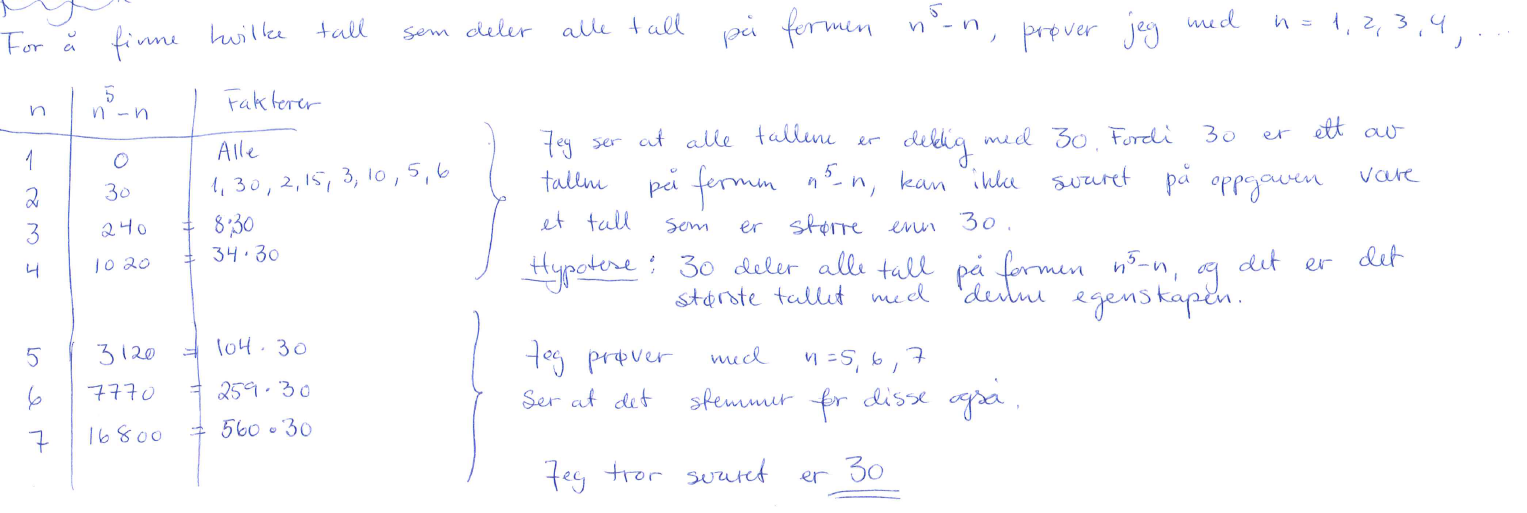 For å finne hvilke tall som deler alle tall på formen n⁵-n, prøver jeg med n = 1, 2, 3, 4, ...
n | n⁵-n | Faktorer
1 | 0 | Alle
2 | 30 | 1, 30, 2, 15, 3, 10, 5, 6
3 | 240 = 8·30
4 | 1020 = 34·30
Jeg ser at alle tallene er delelig med 30. Fordi 30 er ett av
tallene på formen n⁵-n, kan ikke svaret på oppgaven være
et tall som er større enn 30.
Hypotese: 30 deler alle tall på formen n⁵-n, og det er det
største tallet med denne egenskapen.
5 | 3120 = 104·30
6 | 7770 = 259·30
7 | 16800 = 560·30
Jeg prøver med n=5, 6, 7
Ser at det stemmer for disse også.
Jeg tror svaret er 30